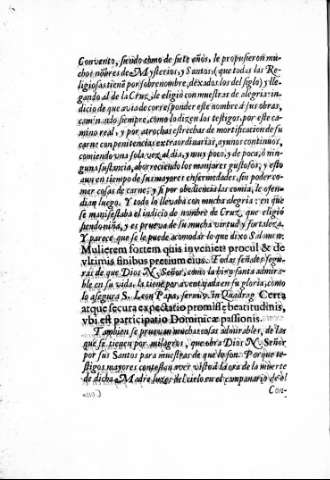 Convento, siendo como de siete años, le propusieron mu-
chos nõbres de Mysterios, y Santos (que todas las Re-
ligiosas tienẽ por sobrenombre, dexados los del siglo) y lle-
gando al de la Cruz, le eligió con muestras de alegria: in-
dicio de que avia de corresponder este nombre à sus obras,
caminando siempre, como lo dizen los testigos, por este ca-
mino real, y por atrochas estrechas de mortificacion de su
carne con penitencias extraordinarias, ayunos continuos,
comiendo una sola vez al dia, y muy poco, y de poca, ò nin-
guna sustancia, aborreciendo los manjares gustosos, y esto
aun en tiempo de sus mayores enfermedades, sin poder co-
mer cosas de carne; y si por obediencia las comia, le ofen-
dian luego. Y todo lo llevaba con mucha alegria: en que
se manifestaba el indicio del nombre de Cruz, que eligió
siendo niña, y es prueva de su mucha virtud, y fortaleza.
Y parece que se le puede acomodar lo que dixo
Mulierem fortem quis inveniet? procul & de
vltimis finibus pretium eius. Todas señales segu-
ras de que Dios N. Señor, como la hizo santa admira-
ble en su vida, la tiene por aventajada en su gloria, como
lo assegura S. Leon Papa, serm. in Quadrag. Certa
atque secura expectatio promissæ beatitudinis,
vbi est participatio Dominicæ passionis.
Tambien se prueban muchas cosas admirables, de las
que se tienen por milagros, que obra Dios N. Señor
por sus Santos para muestras de que lo son. Porque tes-
tigos mayores contestan aver visto à la ora de la muerte
de dicha Madre luzes del cielo en el campanario de el
Con-